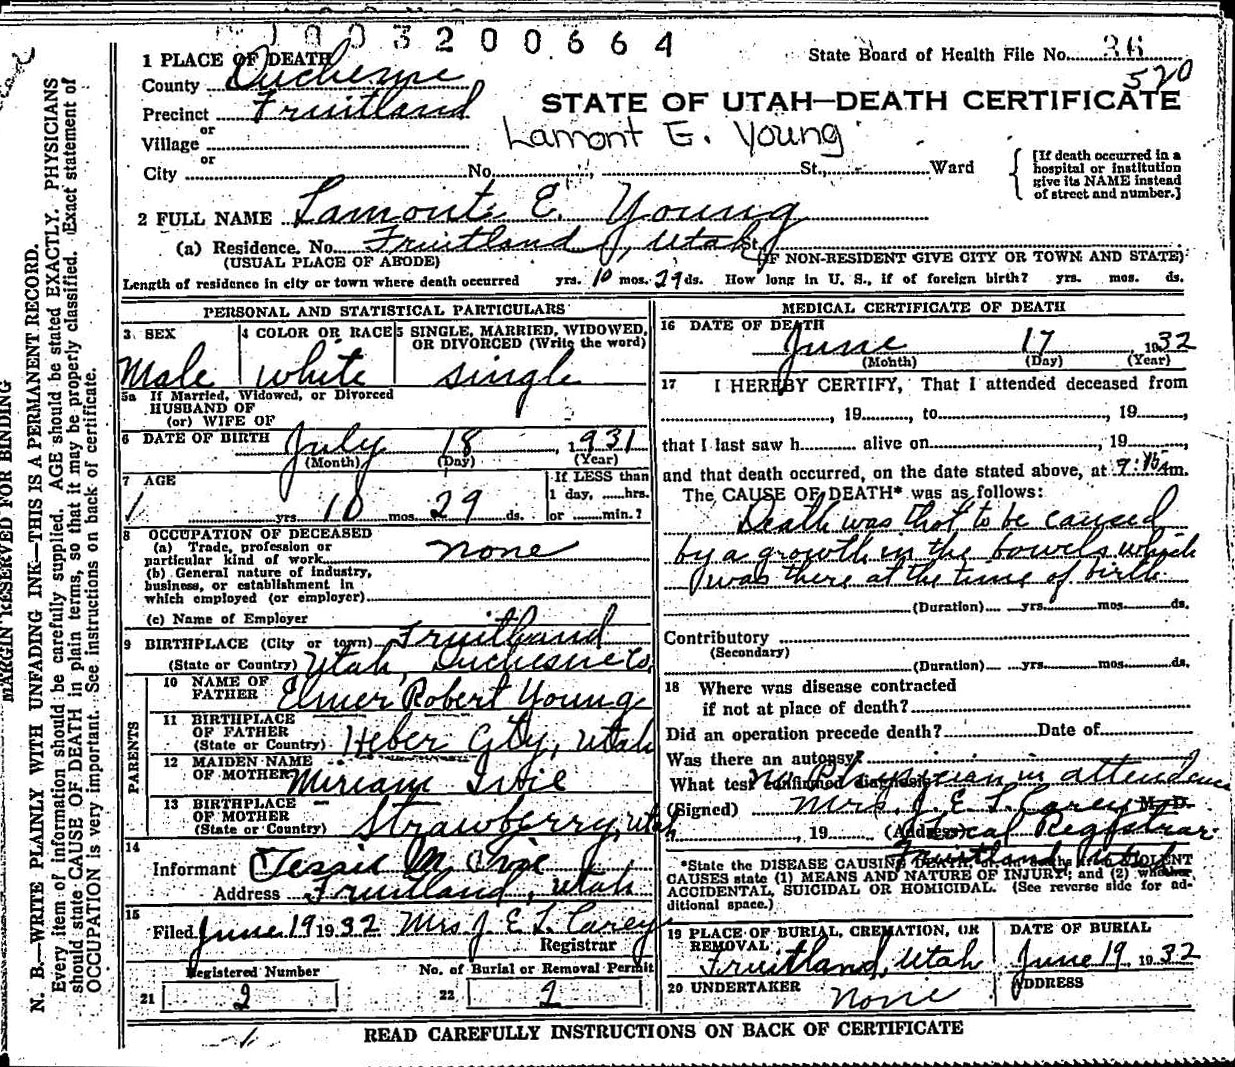 1003200664
State Board of Health File No. 36
520
1 PLACE OF DEATH
County Duchesne
Precinct Fruitland
STATE OF UTAH—DEATH CERTIFICATE
or
Village
Lamont E. Young
or
City No. St., Ward
[If death occurred in a
hospital or institution
give its NAME instead
of street and number.]
2 FULL NAME Lamont E. Young
(a) Residence. No. Fruitland, Utah St.
(USUAL PLACE OF ABODE) (IF NON-RESIDENT GIVE CITY OR TOWN AND STATE)
Length of residence in city or town where death occurred yrs. 10 mos. 29 ds. How long in U. S., if of foreign birth? yrs. mos. ds.
PERSONAL AND STATISTICAL PARTICULARS
3 SEX
Male
4 COLOR OR RACE
white
5 SINGLE, MARRIED, WIDOWED,
OR DIVORCED (Write the word)
single
5a If Married, Widowed, or Divorced
HUSBAND OF
(or) WIFE OF
6 DATE OF BIRTH July 18, 1931
(Month) (Day) (Year)
7 AGE
yrs. 10 mos. 29 ds.
If LESS than
1 day, hrs.
or min.?
8 OCCUPATION OF DECEASED
(a) Trade, profession or
particular kind of work none
(b) General nature of industry,
business, or establishment in
which employed (or employer)
(c) Name of Employer
9 BIRTHPLACE (City or town) Fruitland
(State or Country) Utah, Duchesne Co.
PARENTS
10 NAME OF
FATHER Elmer Robert Young
11 BIRTHPLACE
OF FATHER
(State or Country) Heber City, Utah
12 MAIDEN NAME
OF MOTHER Miriam Ivie
13 BIRTHPLACE
OF MOTHER
(State or Country) Strawberry, Utah
14
Informant Jessie M. Ivie
Address Fruitland, Utah
15
Filed June 19 1932 Mrs J. E. L. Carey
Registrar
Registered Number
21 2
No. of Burial or Removal Permit
22 2
MEDICAL CERTIFICATE OF DEATH
16 DATE OF DEATH
June 17, 1932
(Month) (Day) (Year)
17 I HEREBY CERTIFY, That I attended deceased from
, 19, to, 19,
that I last saw h alive on, 19,
and that death occurred, on the date stated above, at 9:45 Am.
The CAUSE OF DEATH* was as follows:
Death was that to be caused
by a growth in the bowels which
was there at the time of birth
(Duration) yrs. mos. ds.
Contributory
(Secondary)
(Duration) yrs. mos. ds.
18 Where was disease contracted
if not at place of death?
Did an operation precede death? Date of
Was there an autopsy?
What test confirmed diagnosis? No Physician in attendence
(Signed) Mrs. J. E. L. Carey M. D.
, 19 (Address) Local Registrar
Fruitland Utah
*State the DISEASE CAUSING DEATH, or in deaths from VIOLENT
CAUSES state (1) MEANS AND NATURE OF INJURY; and (2) whether
ACCIDENTAL, SUICIDAL OR HOMICIDAL. (See reverse side for ad-
ditional space.)
19 PLACE OF BURIAL, CREMATION, OR
REMOVAL
Fruitland, Utah
DATE OF BURIAL
June 19, 1932
20 UNDERTAKER
none
ADDRESS
READ CAREFULLY INSTRUCTIONS ON BACK OF CERTIFICATE
MARGIN RESERVED FOR BINDING
N. B.—WRITE PLAINLY WITH UNFADING INK—THIS IS A PERMANENT RECORD.
Every item of information should be carefully supplied. AGE should be stated EXACTLY. PHYSICIANS
should state CAUSE OF DEATH in plain terms, so that it may be properly classified. Exact statement of
OCCUPATION is very important. See instructions on back of certificate.